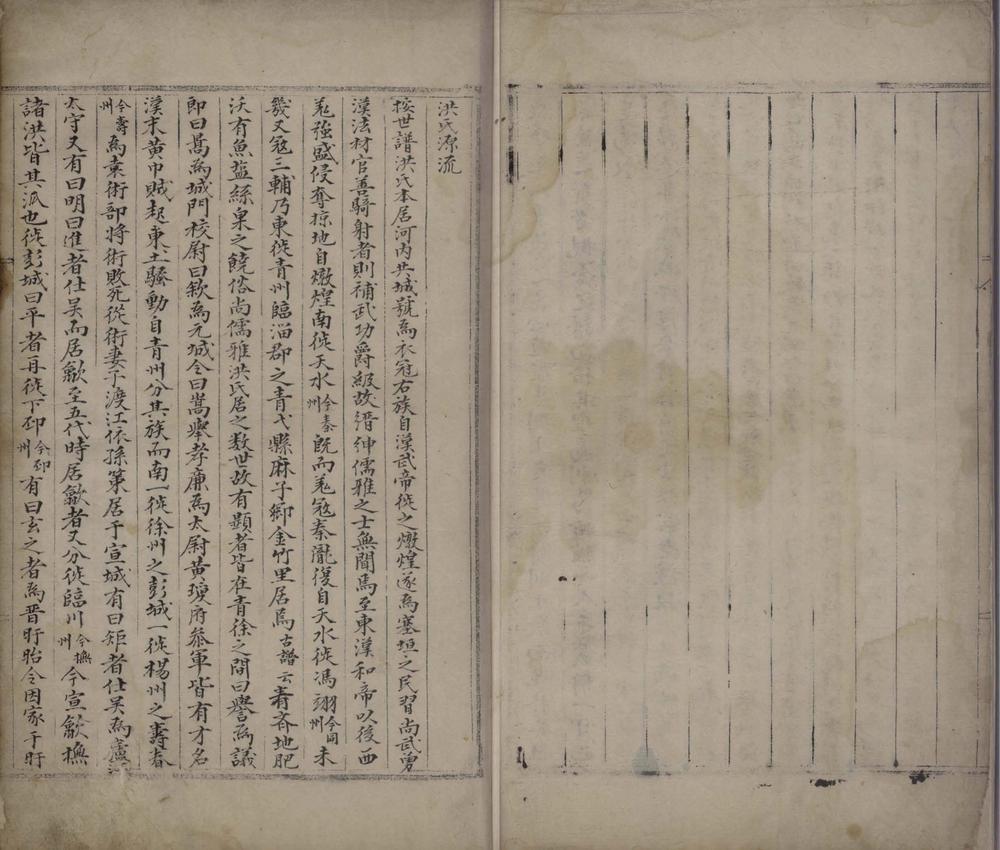 洪氏源流
按世譜洪氏本居河內共城號為衣冠右族自漢武帝徙之燉煌遂為塞垣之民習尚武勇
漢法材官善騎射者則補武功爵級故縉紳儒雅之士無聞焉至東漢和帝以後西
羌強盛侵奪掠地自燉煌南徙天水今秦州既而羌寇秦隴復自天水徙馮翊今同州未
幾又寇三輔乃東徙青州臨淄郡之青弋縣麻子鄉金竹里居焉古譜云青齊地肥
沃有魚盐絲枲之饒俗尚儒雅洪氏居之数世故有顯者皆在青徐之間曰譽為議
即曰暠為城門校尉曰欽為元城令曰嵩舉孝廉為太尉黃瓊府叅軍皆有才名
漢末黃巾賊起東土騷動自青州分其族而南一徙徐州之彭城一徙楊州之壽春
今壽州為袁術部將術敗死從術妻子渡江依孫策居于宣城有曰矩者仕吴為廬江
太守又有曰明曰進者仕吴而居歙至五代時居歙者又分徙臨川今撫州今宣歙撫
諸洪皆其派也徙彭城曰平者再徙下邳今邳州有曰玄之者為晋盱眙令因家于盱